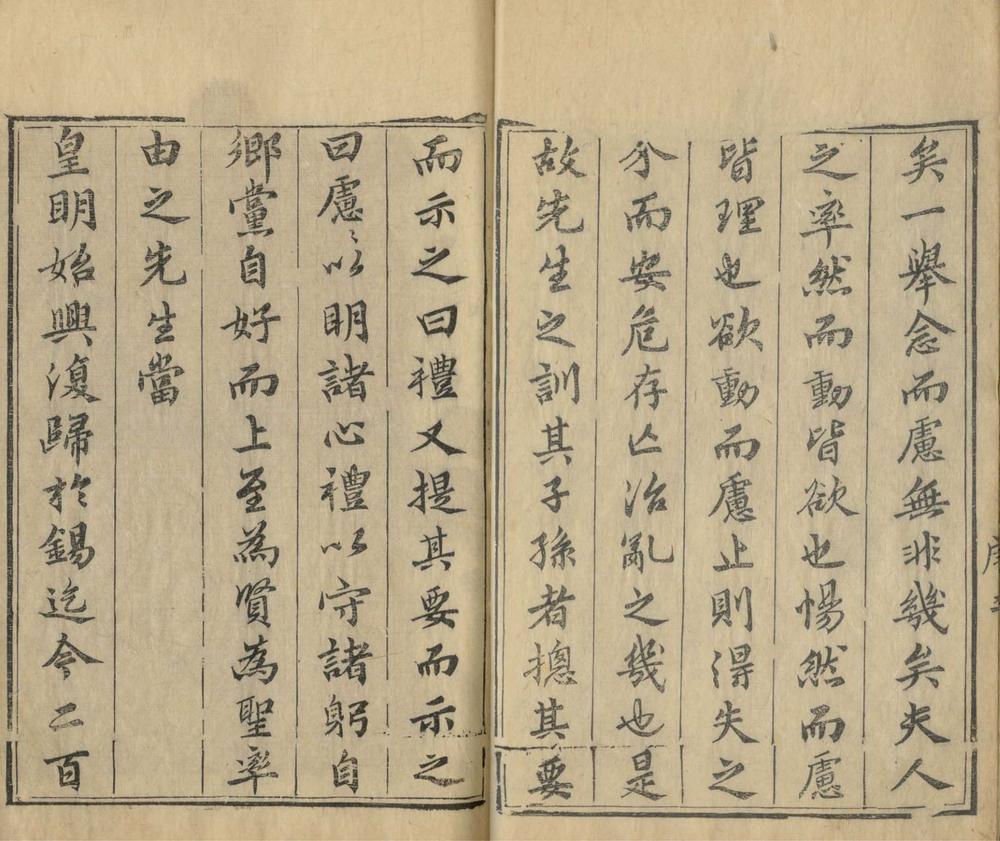 矣一舉念而慮無非幾矣夫人
之率然而動皆欲也惕然而慮
皆理也欲動而慮止則得失之
分而安危存亡治亂之幾也是
故先生之訓其子孫者摠其要
而示之曰禮又提其要而示之
曰慮〻以明諸心禮以守諸躬自
鄉黨自好而上至為賢為聖率
由之先生當
皇明始興復歸於錫迄今二百